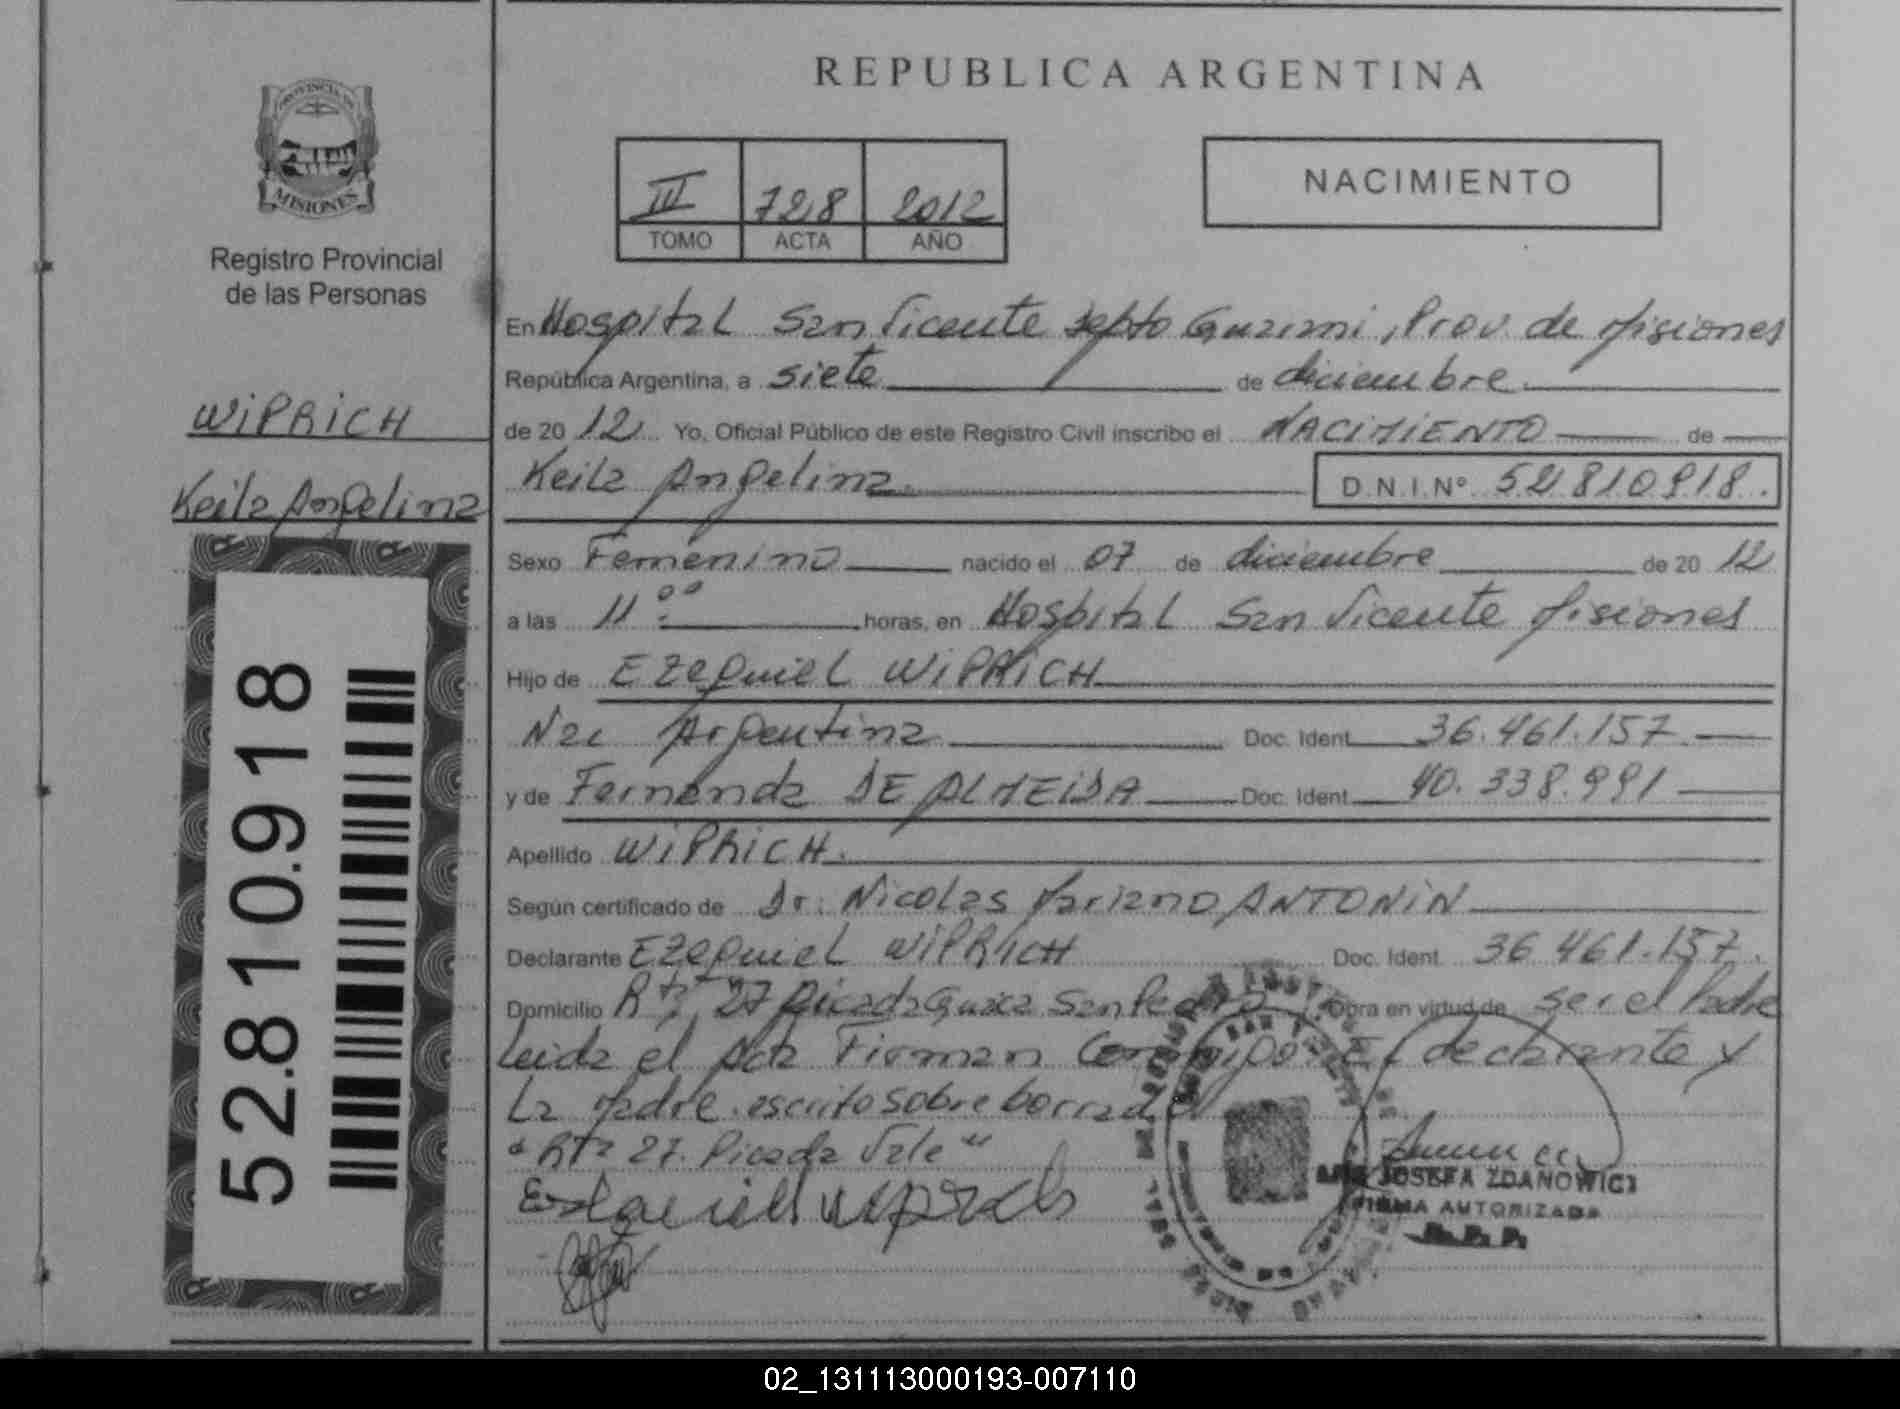 REPUBLICA ARGENTINA
PROVINCIA DE
MISIONES
Registro Provincial
de las Personas
WiPRiCH
Keila Angelina
52.810.918
III 728 2012
TOMO ACTA AÑO
NACIMIENTO
En Hospital San Vicente Depto Guarani, Prov. de Misiones
República Argentina, a siete de diciembre
de 2012 Yo, Oficial Público de este Registro Civil inscribo el NACIMIENTO de
Keila Angelina D.N.I.Nº 52810918.
Sexo Femenino nacido el 07 de diciembre de 2012
a las 11:00 horas, en Hospital San Vicente Misiones
Hijo de EZequieL WiPRiCH
Nac Argentina Doc. Ident. 36.461.157
y de Fernanda DE ALMEIDA Doc. Ident. 40.338.991
Apellido WiPRiCH.
Según certificado de Dr. Nicolas Mariano ANTONiN
Declarante EZequieL WiPRiCH Doc. Ident. 36 461.157.
Domicilio Rta 27 Picada Guaca San Pedro Obra en virtud de ser el Padre
Leida el Acta Firman Conmigo El declarante y
La Madre. escrito sobre borrado
"Rta 27. Picada Vale"
Ezequiel wiprich
ANA JOSEFA ZDANOWICZ
FIRMA AUTORIZADA
R. P. P.
02_131113000193-007110